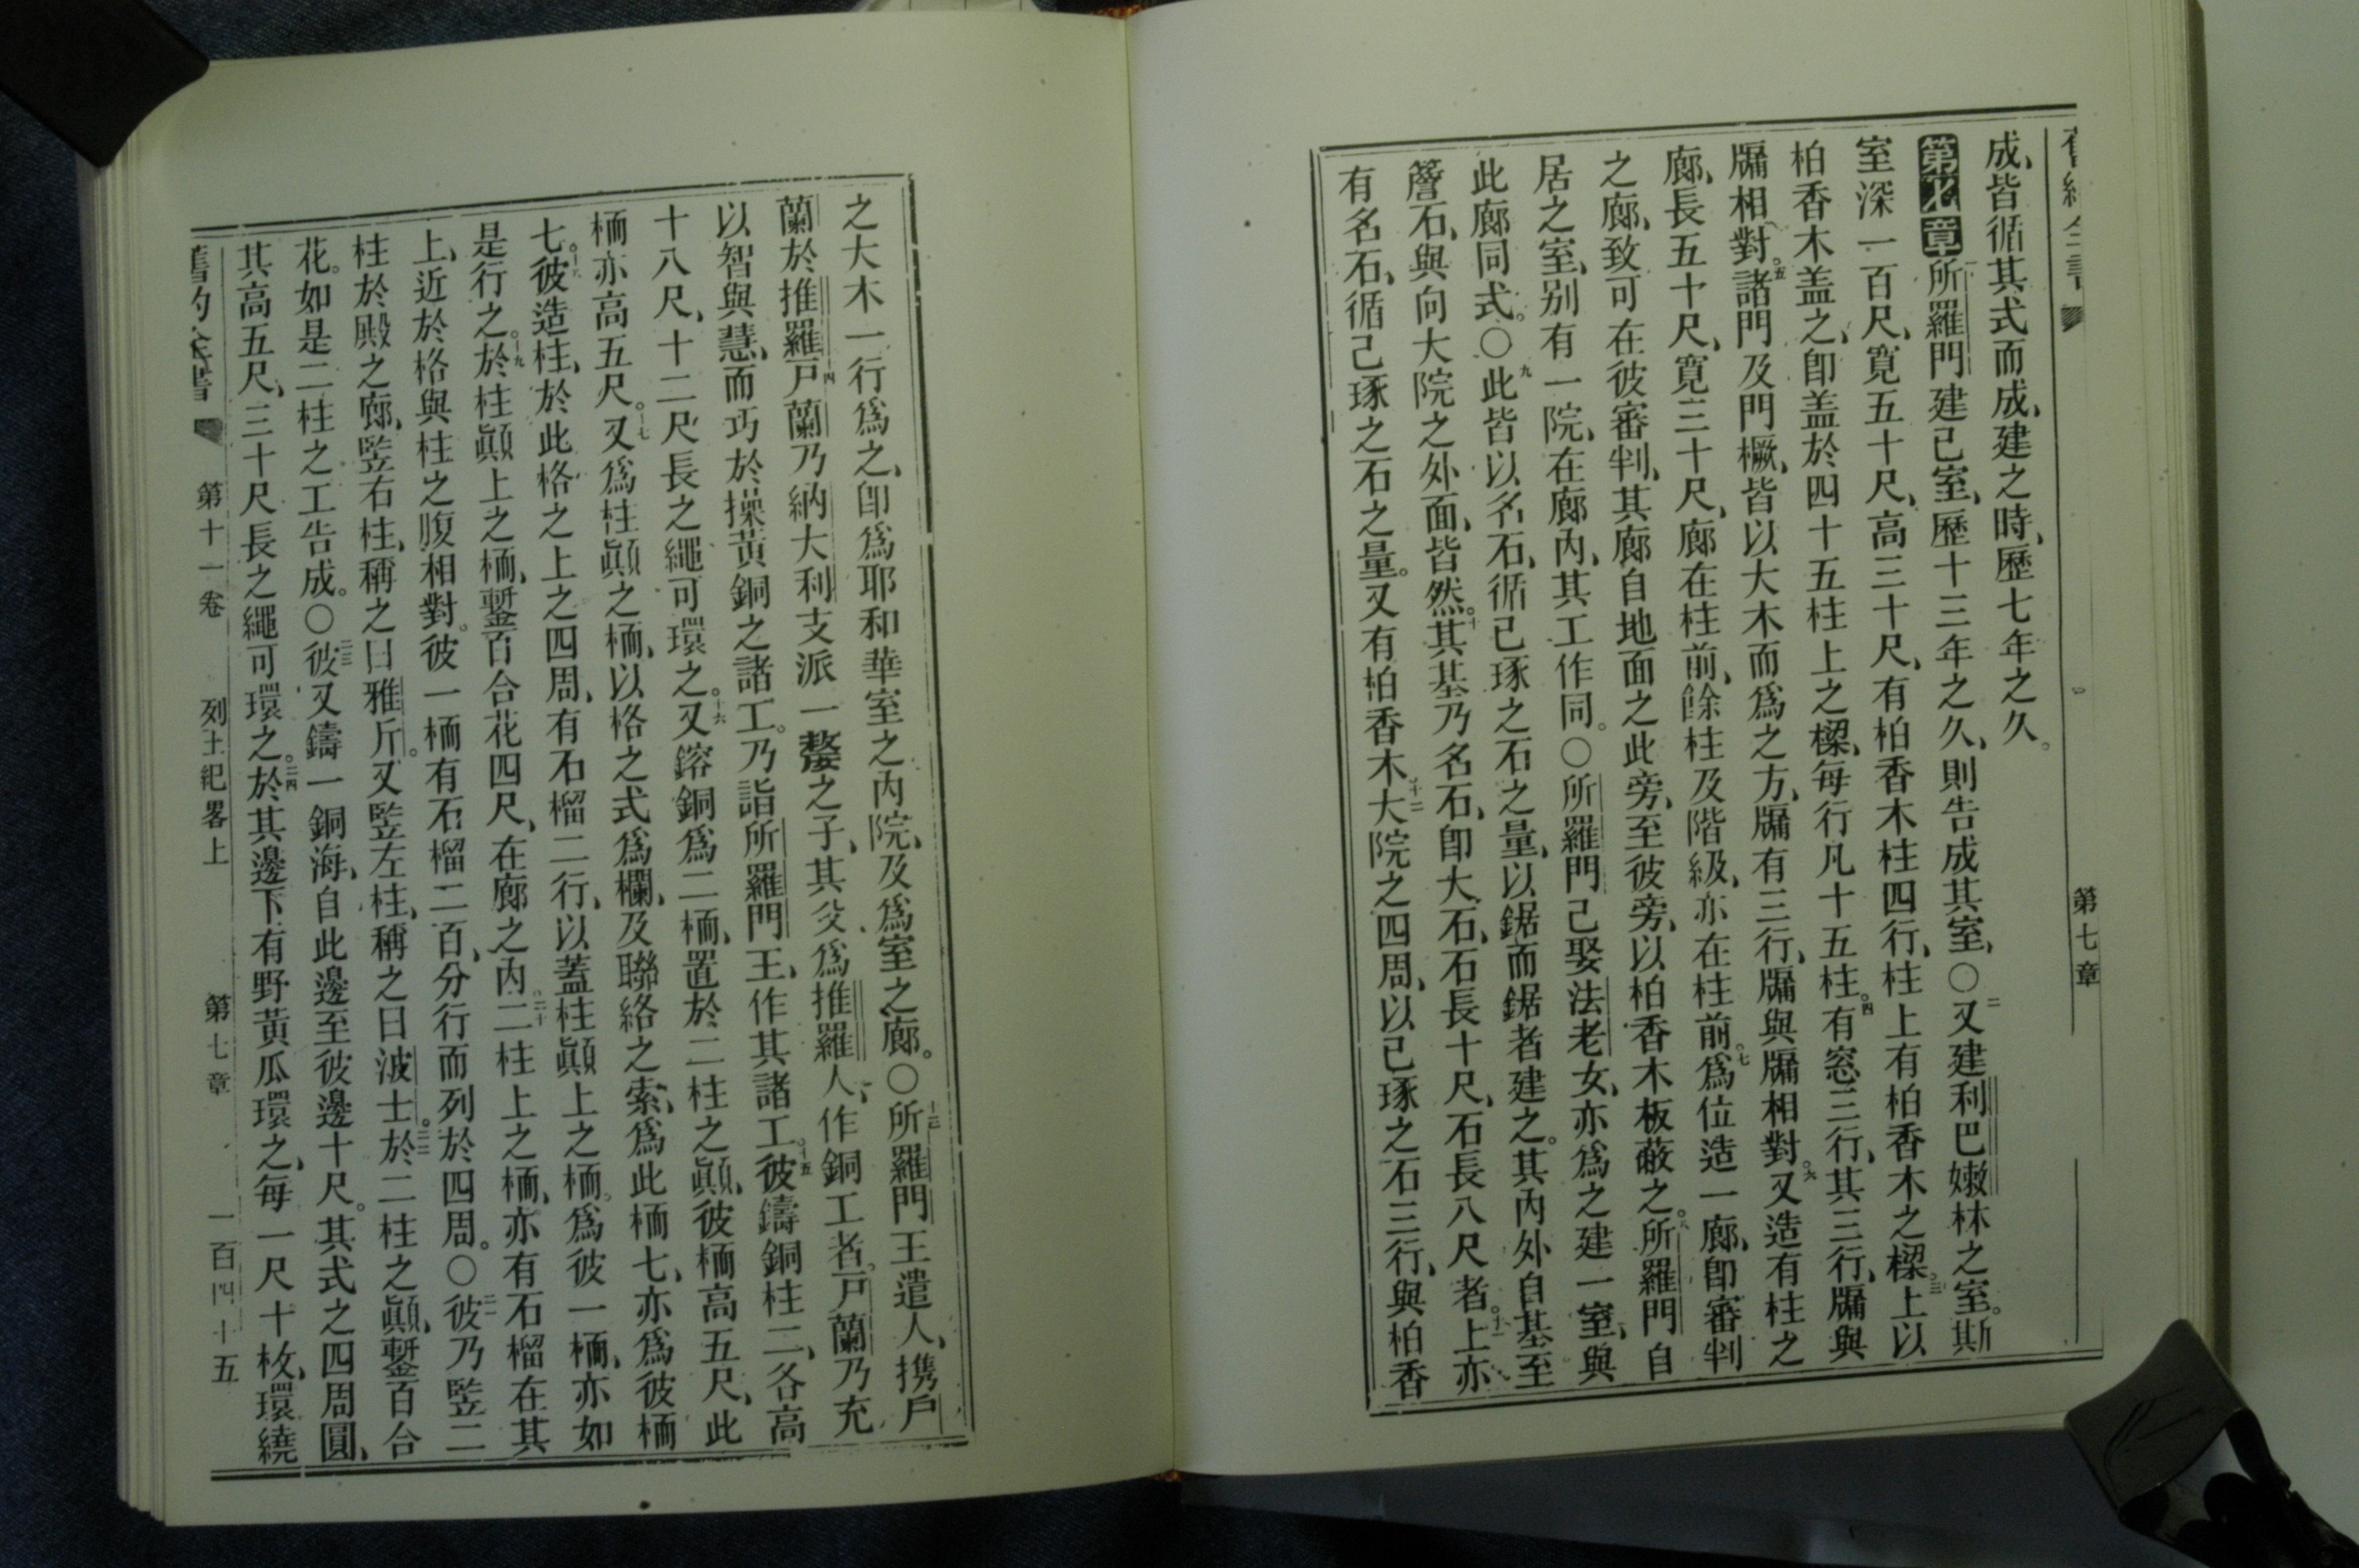 第七章
成、皆循其式而成、建之時、歷七年之久。
第七章 一所羅門建己室、歷十三年之久、則告成其室、〇二又建利巴嫩林之室。斯
室深一百尺、寬五十尺、高三十尺、有柏香木柱四行、柱上有柏香木之樑。三上以
柏香木盖之、卽盖於四十五柱上之樑、每行凡十五柱。四有窓三行、其三行、牖與
牖相對。五諸門及門橛、皆以大木而爲之方、牖有三行、牖與牖相對。六又造有柱之
廊、長五十尺、寬三十尺、廊在柱前、餘柱及階級、亦在柱前。七爲位造一廊、卽審判
之廊、致可在彼審判、其廊自地面之此旁、至彼旁、以柏香木板蔽之。八所羅門自
居之室、别有一院、在廊內、其工作同。〇所羅門己娶法老女、亦爲之建一室、與
此廊同式。〇九此皆以名石、循己琢之石之量、以鋸而鋸者建之。其內外自基至
簷石、與向大院之外面、皆然。十其基乃名石、卽大石、石長十尺、石長八尺者。十一上亦
有名石、循己琢之石之量。又有柏香木、十二大院之四周、以己琢之石三行、與柏香
之大木一行爲之、卽爲耶和華室之內院、及爲室之廊。〇十三所羅門王遣人、携戶
蘭於推羅、十四戶蘭乃納大利支派一嫠之子、其父爲推羅人、作銅工者。戶蘭乃充
以智與慧、而巧於操黃銅之諸工。乃詣所羅門王、作其諸工。十五彼鑄銅柱二、各高
十八尺、十二尺長之繩可環之。十六又鎔銅爲二栭、置於二柱之顚、彼栭高五尺、此
栭亦高五尺。十七又爲柱顚之栭、以格之式爲欄、及聯絡之索、爲此栭七、亦爲彼栭
七。十八彼造柱、於此格之上之四周、有石榴二行、以蓋柱顚上之栭。爲彼一栭、亦如
是行之。十九於柱顚上之栭、鏨百合花四尺、在廊之內。二十二柱上之栭、亦有石榴在其
上、近於格與柱之腹相對。彼一栭有石榴二百、分行而列於四周。〇二一彼乃竪二
柱於殿之廊、竪右柱、稱之曰雅斤。又竪左柱、稱之曰波士。二二於二柱之顚、鏨百合
花。如是二柱之工告成。〇二三彼又鑄一銅海、自此邊至彼邊十尺。其式之四周圓、
其高五尺、三十尺長之繩可環之。二四於其邊下有野黃瓜環之、每一尺十枚、環繞
第十一卷 列王紀畧上 第七章 一百四十五